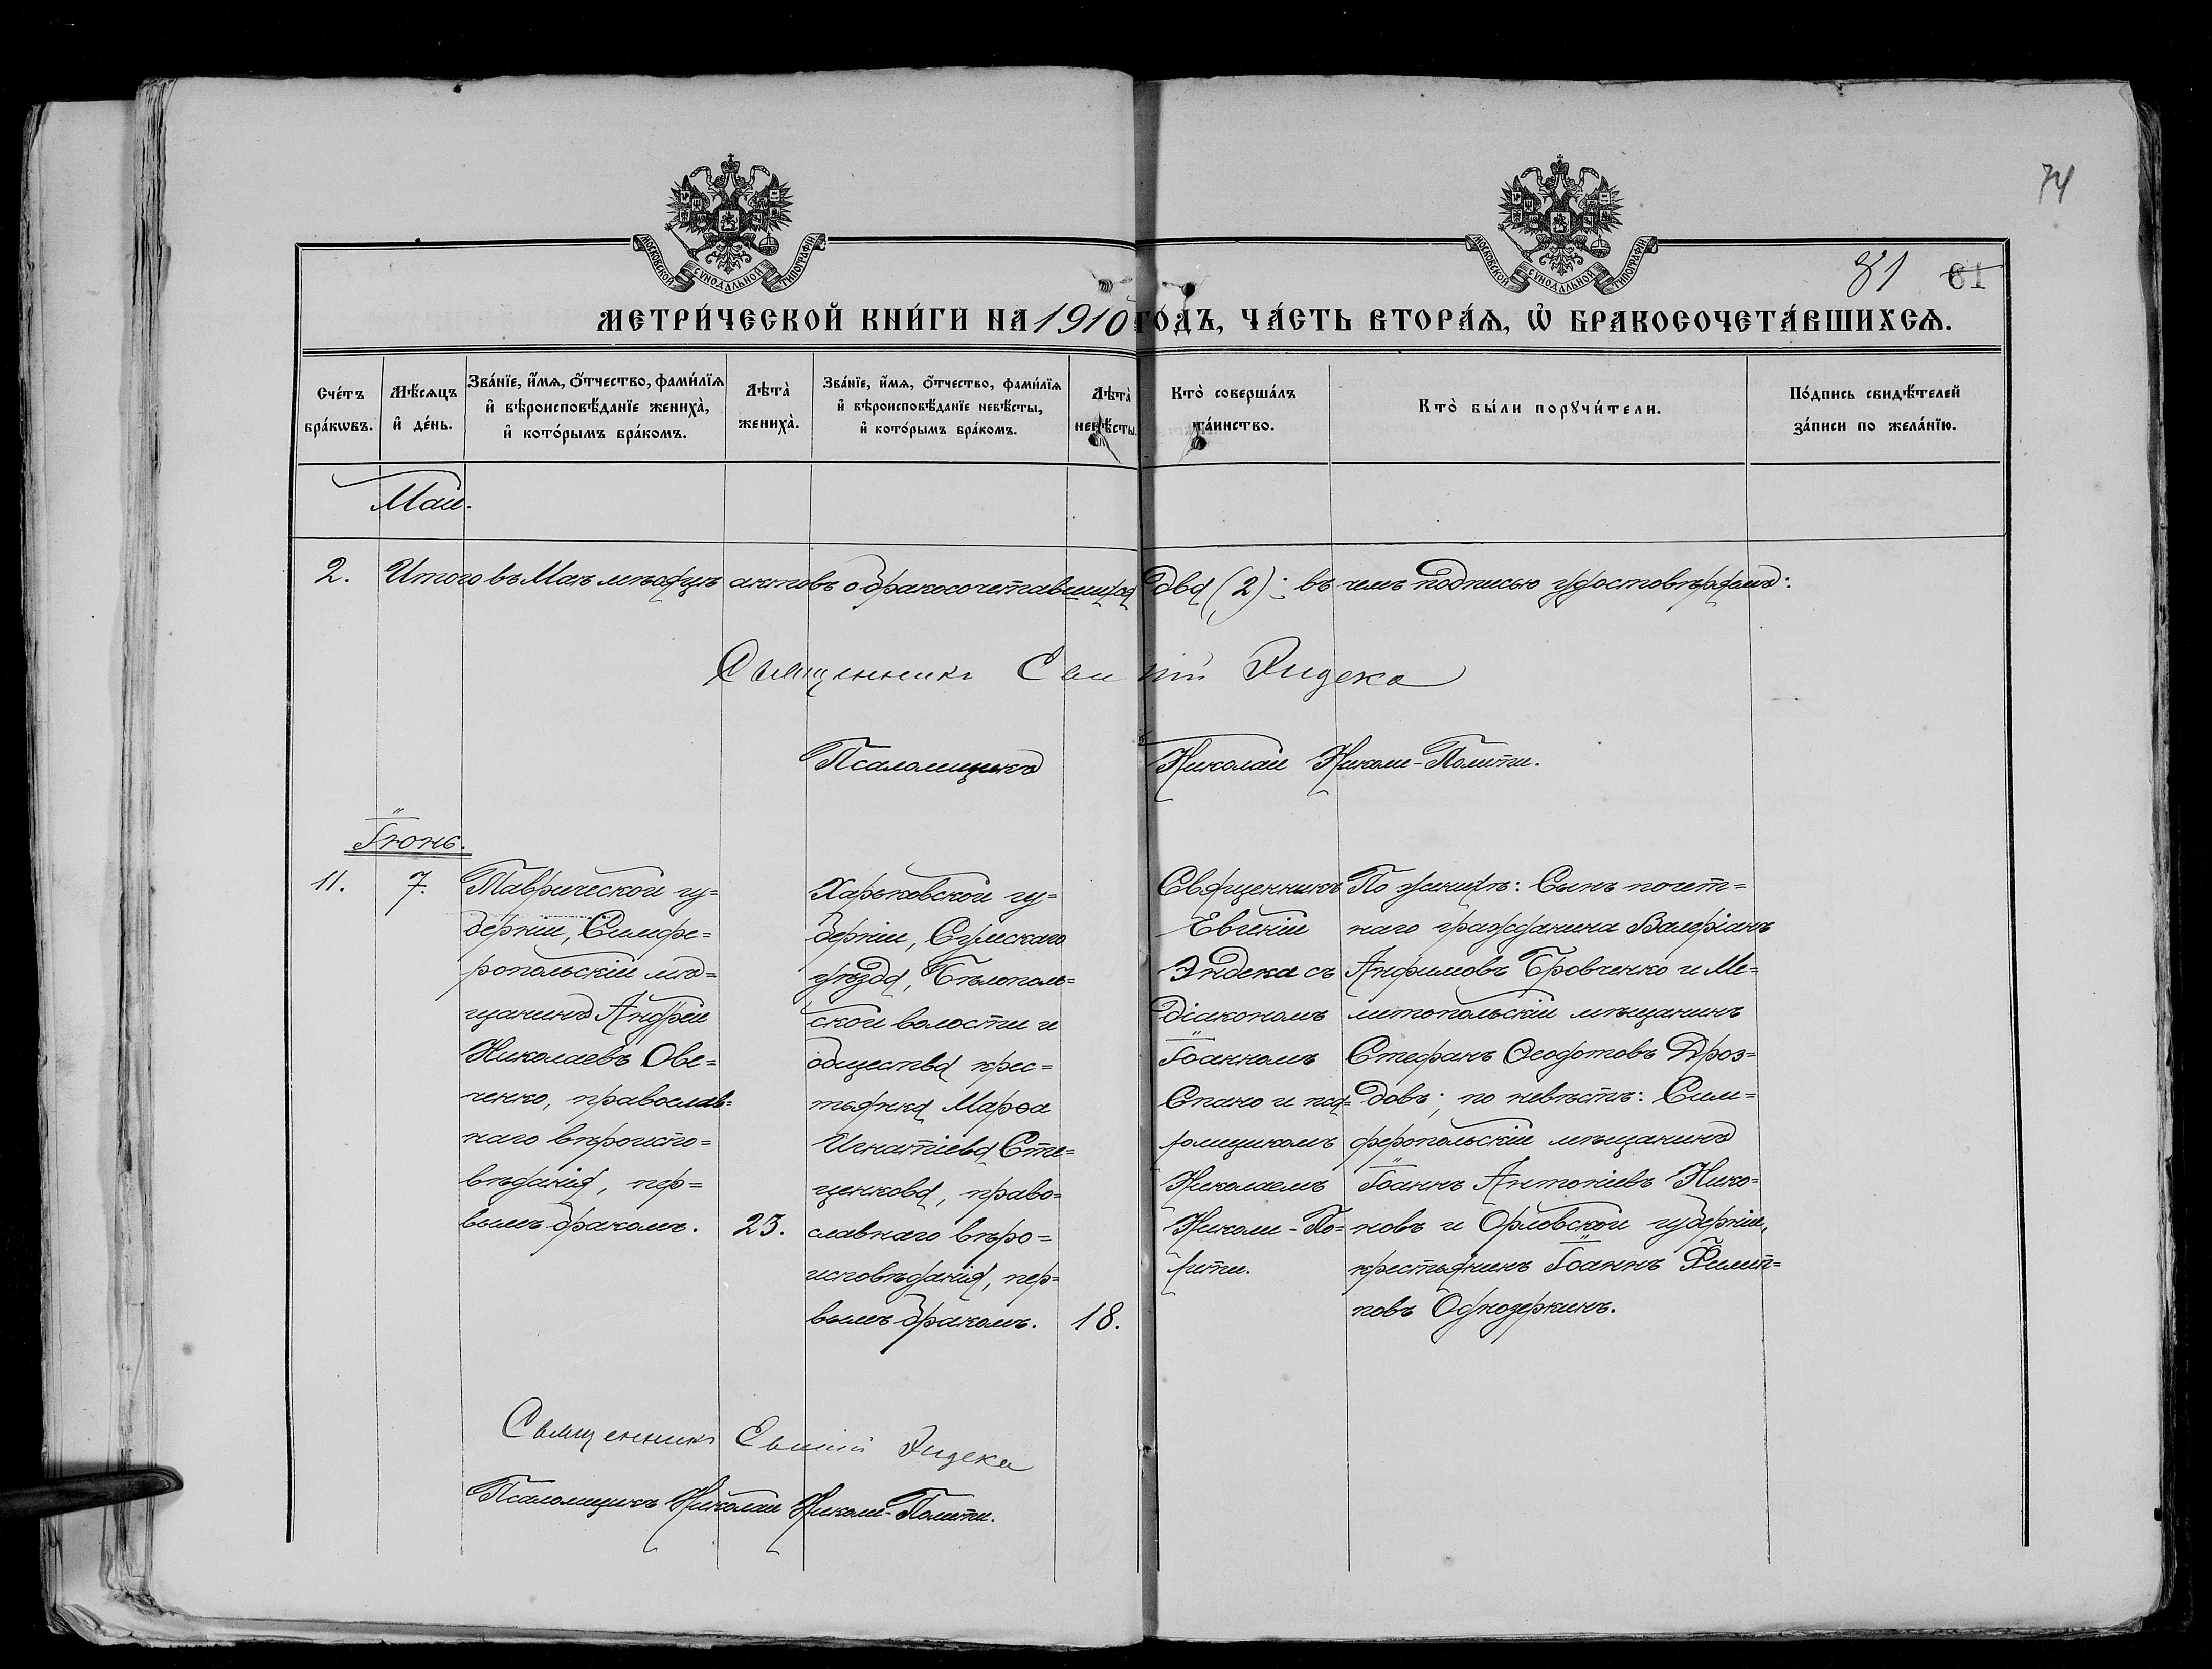 74
81 61
МОСКОВСКОЙ СѴНОДАЛЬНОЙ ТИПОГРАФІИ
МОСКОВСКОЙ СѴНОДАЛЬНОЙ ТИПОГРАФІИ
МЕТРИ́ЧЕСКОЙ КНИ́ГИ НА 1910 ГО́ДЪ, ЧА́СТЬ ВТОРА́Ѧ, Ѽ БРАКОСОЧЕТА́ВШИХСѦ.
Сче́тъ
бра́кѡвъ.
Мѣ́сѧцъ
и҆ де́нь.
Зва́нїе, и҆́мѧ, о҆́тчество, фами́лїѧ
и҆ вѣроисповѣ́данїе жениха̀,
и҆ кото́рымъ бра́комъ.
Лѣта̀
жениха̀.
Зва́нїе, и҆́мѧ, о҆́тчество, фами́лїѧ
и҆ вѣроисповѣ́данїе невѣ́сты,
и҆ кото́рымъ бра́комъ.
Лѣта̀
невѣ́сты.
Кто̀ соверша́лъ
та́инство.
Кто̀ бы́ли порꙋчи́тели.
По́дпись свидѣ́телей
за́писи по жела́нїю.
Май.
2. Итого въ Маѣ мѣсяцѣ актовъ о бракосочетавшихся два (2): въ чемъ подписью удостовѣряемъ:
Священникъ Евгеній Эндека
Псаломщикъ Николай Николи-Полити.
Іюнь.
11. 7.
Таврической гу=
берніи, Симфе=
ропольскій мѣ=
щанинъ Андрей
Николаевъ Ове=
ченко, православ=
наго вѣроиспо=
вѣданія, пер=
вымъ бракомъ.
23.
Харьковской гу=
берніи, Сумскаго
уѣзда, Бѣлополь=
ской волости и
общества крес=
тьянка Марѳа
Игнатіева Сте=
ценкова, право=
славнаго вѣро=
исповѣданія, пер=
вымъ бракомъ.
18.
Священникъ
Евгеній
Эндека съ
діакономъ
Іоанномъ
Спано и пса=
ломщикомъ
Николаемъ
Николи-По=
лити.
По женихѣ: Сынъ почет=
наго гражданина Валеріанъ
Анфимовъ Бровченко и Ме=
литопольскій мѣщанинъ
Стефанъ Ѳеодотовъ Дроз=
довъ; по невѣстѣ: Сим=
феропольскій мѣщанинъ
Іоаннъ Антоніевъ Нико=
новъ и Орловской губерніи,
крестьянинъ Іоаннъ Филип=
повъ Однозеркинъ.
Священникъ Евгеній Эндека
Псаломщикъ Николай Николи-Полити.